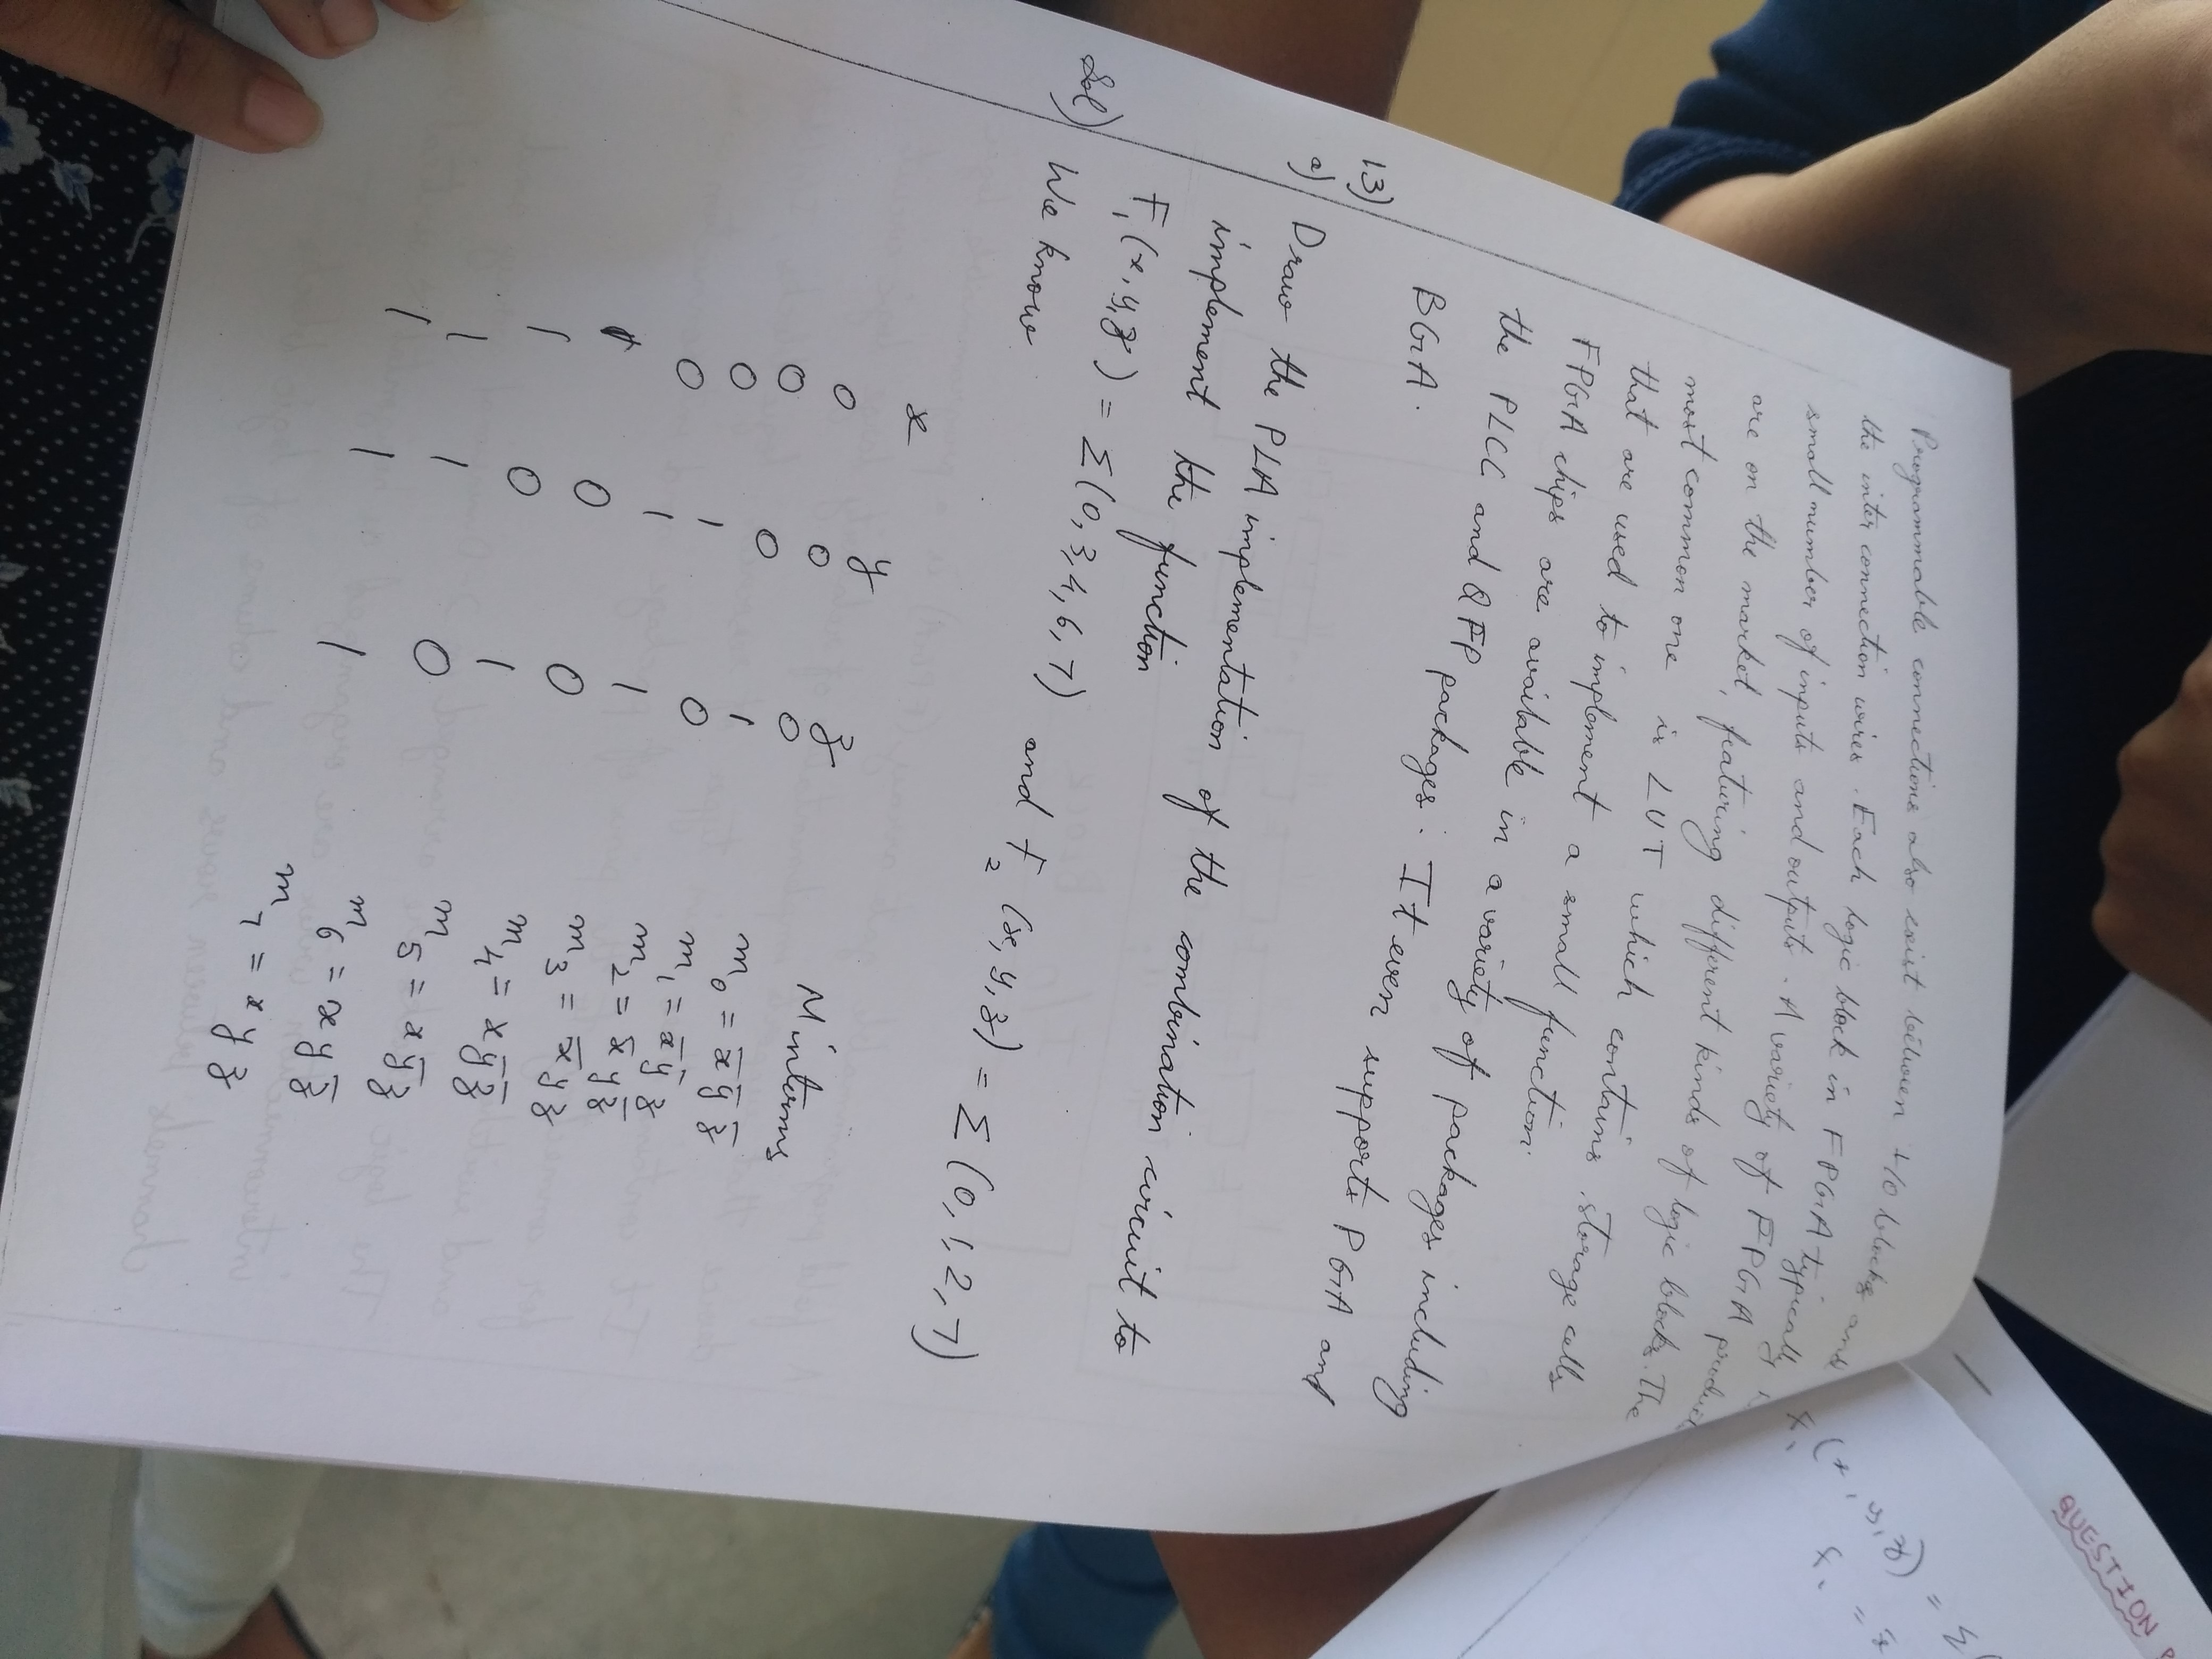 Programmable connections also exist between I/O blocks and
the inter connection wires. Each logic block in FPGA typically
small number of inputs and outputs. A variety of FPGA product
are on the market, featuring different kinds of logic blocks. The
most common one is LUT which contains storage cells
that are used to implement a small function.
FPGA chips are available in a variety of packages including
the PLCC and QFP packages. It even supports PGA and
BGA.
13)
a) Draw the PLA implementation of the combination circuit to
implement the function
F1(x,y,z) = Σ(0,3,4,6,7) and F2(x,y,z) = Σ(0,1,2,7)
Sol) We know
x y z Minterms
0 0 0 m0 = x̅ y̅ z̅
0 0 1 m1 = x̅ y̅ z
0 1 0 m2 = x̅ y z̅
0 1 1 m3 = x̅ y z
1 0 0 m4 = x y̅ z̅
1 0 1 m5 = x y̅ z
1 1 0 m6 = x y z̅
1 1 1 m7 = x y z
QUESTION